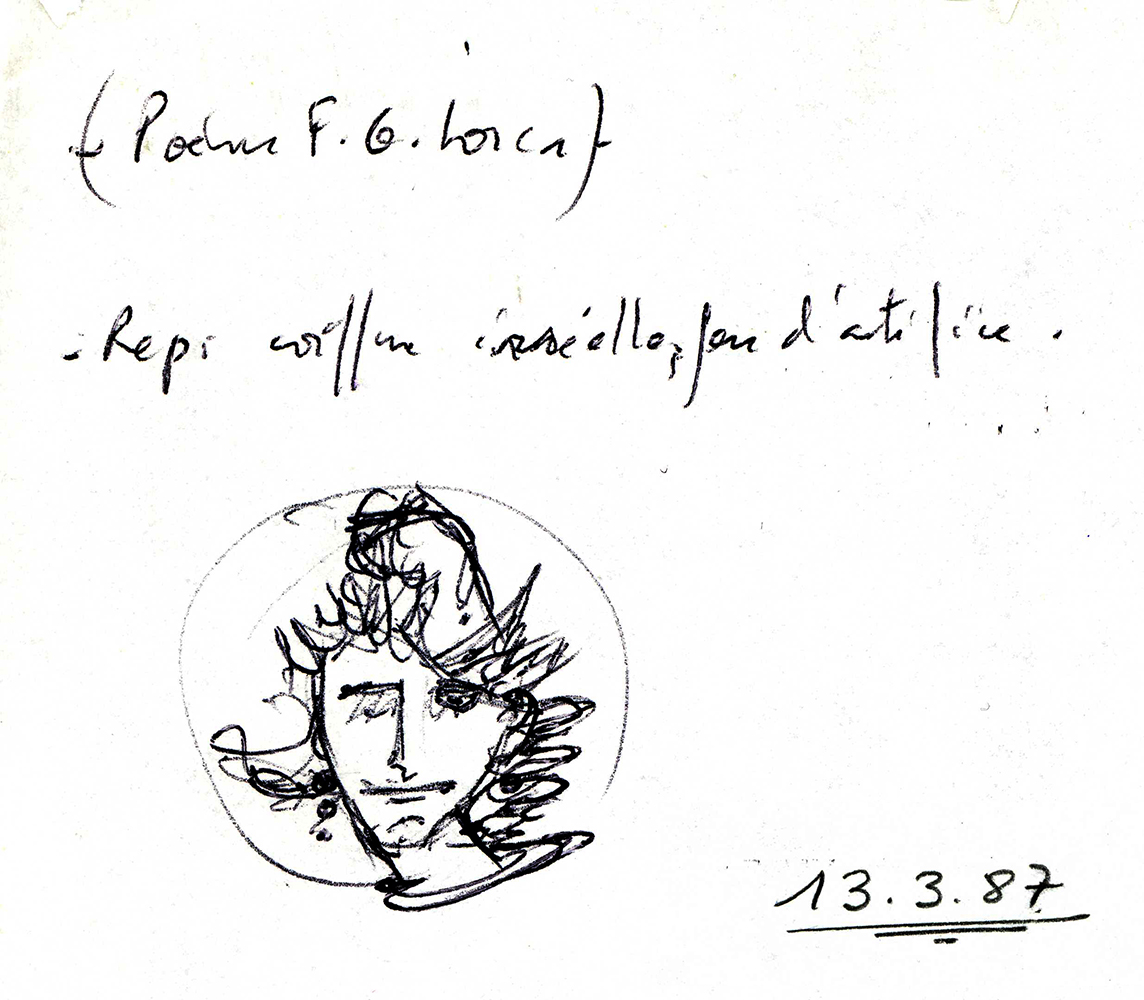 (Poème F. G. Lorca)
- Repi coiffure irréelle, feu d'artifice.
13.3.87